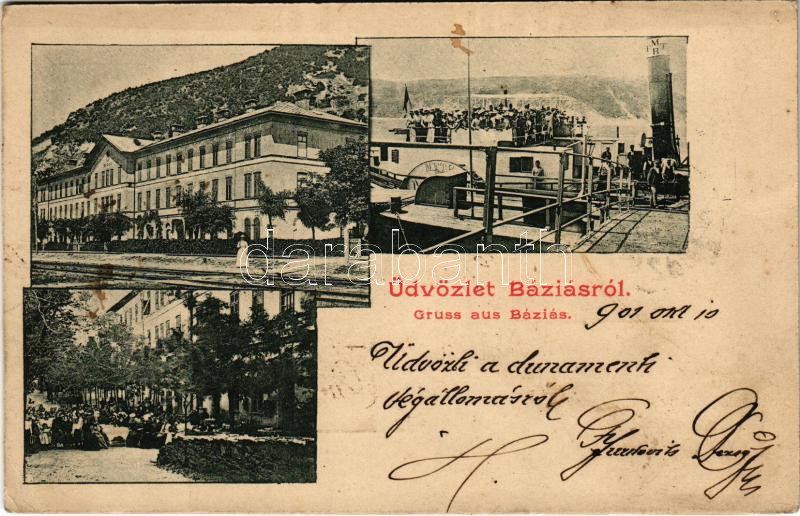 M
F T R
M.F.T.R.
darabanth
Üdvözlet Báziásról.
Gruss aus Báziás.
901 okt 10
Üdvözli a dunamenti
végállomásról